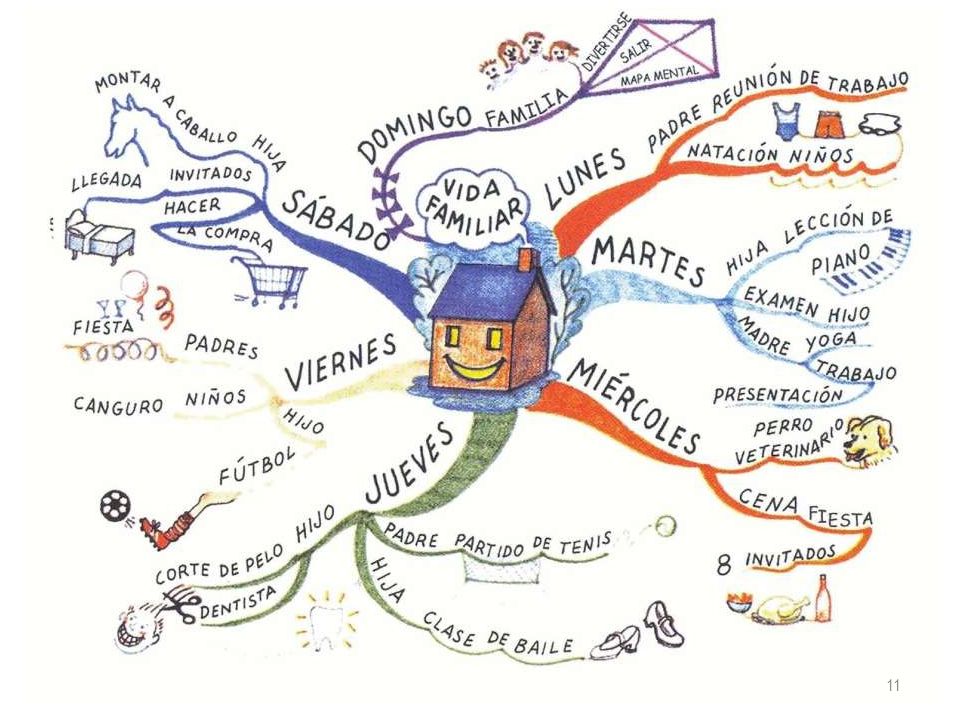 VIDA
FAMILIAR
LUNES
PADRE REUNIÓN DE TRABAJO
NATACIÓN NIÑOS
MARTES
HIJA LECCIÓN DE
PIANO
EXAMEN HIJO
MADRE YOGA
TRABAJO
PRESENTACIÓN
MIÉRCOLES
PERRO
VETERINARIO
CENA FIESTA
8 INVITADOS
JUEVES
PADRE PARTIDO DE TENIS
HIJA CLASE DE BAILE
HIJO
CORTE DE PELO
DENTISTA
VIERNES
PADRES
FIESTA
CANGURO NIÑOS
HIJO
FÚTBOL
SÁBADO
MONTAR A CABALLO HIJA
LLEGADA INVITADOS
HACER
LA COMPRA
DOMINGO FAMILIA
DIVERTIRSE
SALIR
MAPA MENTAL
11